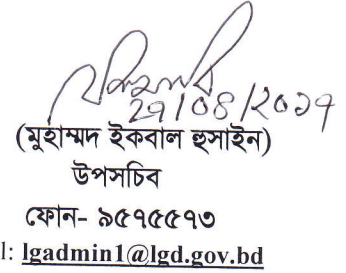 ২৭/০৪/২০১৭
(মুহাম্মদ ইকবাল হুসাইন)
উপসচিব
ফোন- ৯৫৭৫৫৭৩
l: lgadmin1@lgd.gov.bd